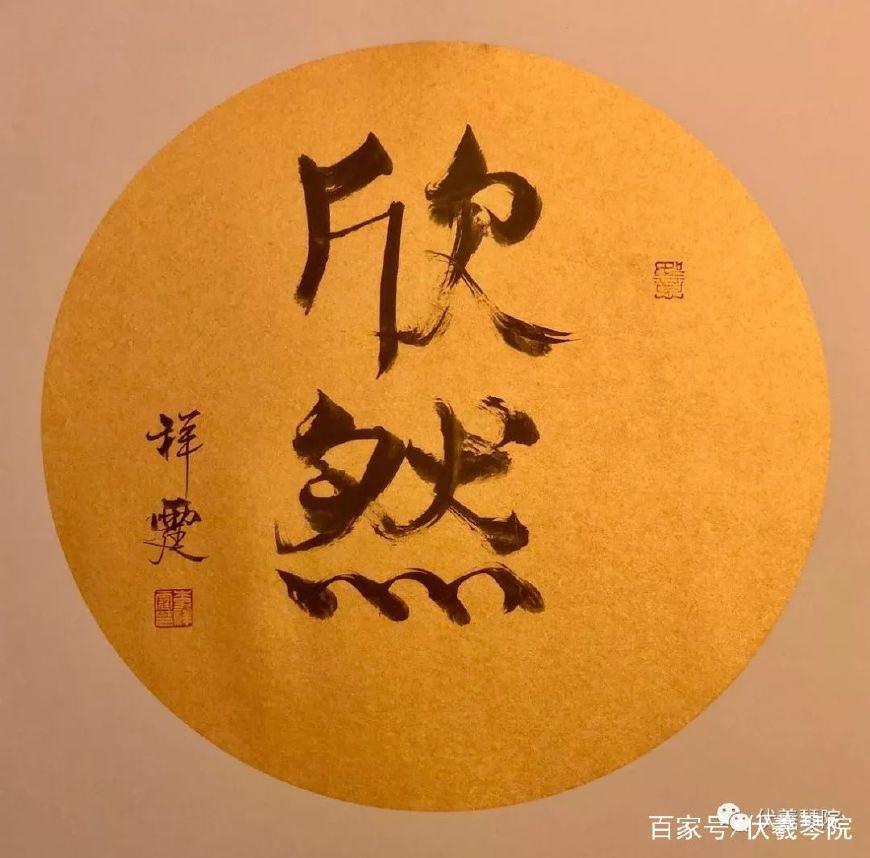 欣
然
祥霆
伏羲琴院
百家号/伏羲琴院